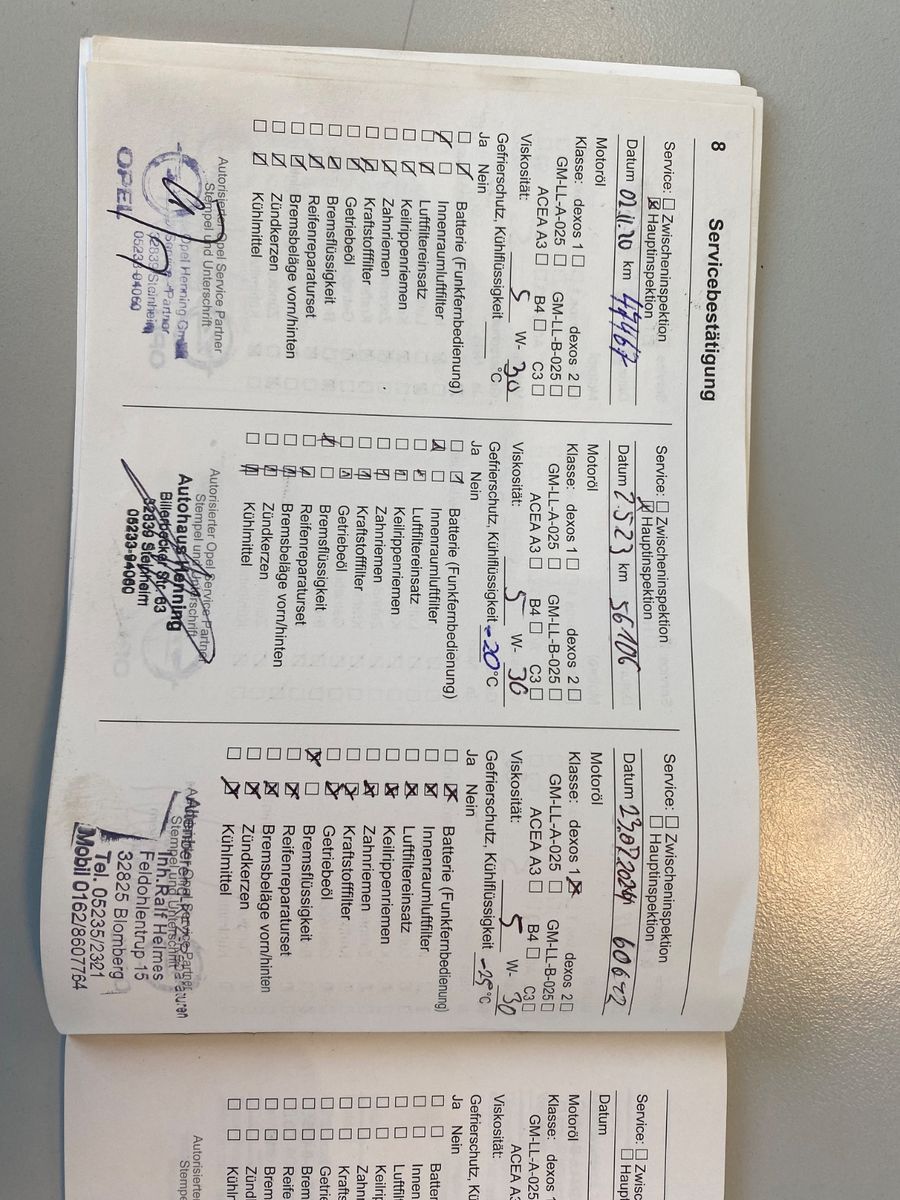 8 Servicebestätigung
Service: ☐ Zwischeninspektion
☒ Hauptinspektion
Datum 02.11.20 km 47467
Motoröl
Klasse: dexos 1 ☐ dexos 2 ☐
GM-LL-A-025 ☐ GM-LL-B-025 ☐
ACEA A3 ☐ B4 ☐ C3 ☐
Viskosität: 5 W- 30
Gefrierschutz, Kühlflüssigkeit °C
Ja Nein
☐ ☒ Batterie (Funkfernbedienung)
☒ ☐ Innenraumluftfilter
☐ ☒ Luftfiltereinsatz
☐ ☒ Keilrippenriemen
☐ ☒ Zahnriemen
☐ ☒ Kraftstofffilter
☐ ☒ Getriebeöl
☐ ☒ Bremsflüssigkeit
☐ ☒ Reifenreparaturset
☐ ☒ Bremsbeläge vorn/hinten
☐ ☒ Zündkerzen
☐ ☒ Kühlmittel
Autorisierter Opel Service Partner
Stempel und Unterschrift
Opel Henning
Service-Partner
32839 Steinheim
05233-94060
OPEL
Service: ☐ Zwischeninspektion
☒ Hauptinspektion
Datum 2.5.23 km 56106
Motoröl
Klasse: dexos 1 ☐ dexos 2 ☐
GM-LL-A-025 ☐ GM-LL-B-025 ☐
ACEA A3 ☐ B4 ☐ C3 ☐
Viskosität: 5 W- 30
Gefrierschutz, Kühlflüssigkeit -20 °C
Ja Nein
☐ ☒ Batterie (Funkfernbedienung)
☒ ☐ Innenraumluftfilter
☐ ☒ Luftfiltereinsatz
☐ ☒ Keilrippenriemen
☐ ☒ Zahnriemen
☐ ☒ Kraftstofffilter
☐ ☒ Getriebeöl
☒ ☐ Bremsflüssigkeit
☐ ☒ Reifenreparaturset
☐ ☒ Bremsbeläge vorn/hinten
☐ ☒ Zündkerzen
☐ ☒ Kühlmittel
Autorisierter Opel Service Partner
Stempel und Unterschrift
Autohaus Henning
Billerbecker Str. 63
32839 Steinheim
05233-94060
Service: ☐ Zwischeninspektion
☐ Hauptinspektion
Datum 23.07.2024 60642
Motoröl
Klasse: dexos 1 ☒ dexos 2 ☐
GM-LL-A-025 ☐ GM-LL-B-025 ☐
ACEA A3 ☐ B4 ☐ C3 ☐
Viskosität: 5 W- 30
Gefrierschutz, Kühlflüssigkeit -25 °C
Ja Nein
☐ ☒ Batterie (Funkfernbedienung)
☐ ☒ Innenraumluftfilter
☐ ☒ Luftfiltereinsatz
☐ ☒ Keilrippenriemen
☐ ☒ Zahnriemen
☐ ☒ Kraftstofffilter
☐ ☒ Getriebeöl
☒ ☐ Bremsflüssigkeit
☐ ☒ Reifenreparaturset
☐ ☒ Bremsbeläge vorn/hinten
☐ ☒ Zündkerzen
☐ ☒ Kühlmittel
Stempel und Unterschrift
Inh. Ralf Helmes
Feldohlentrup 15
32825 Blomberg
Tel. 05235/2321
Mobil 0162/8607764
Service: ☐ Zwisc
☐ Haupt
Datum
Motoröl
Klasse: dexos 1
GM-LL-A-025
ACEA A3
Viskosität:
Gefrierschutz, Kü
Ja Nein
☐ ☐ Batte
☐ ☐ Innen
☐ ☐ Luftfi
☐ ☐ Keilrip
☐ ☐ Zahn
☐ ☐ Krafts
☐ ☐ Getri
☐ ☐ Brem
☐ ☐ Reife
☐ ☐ Brem
☐ ☐ Zünd
☐ ☐ Kühlr
Autorisierte
Stempe